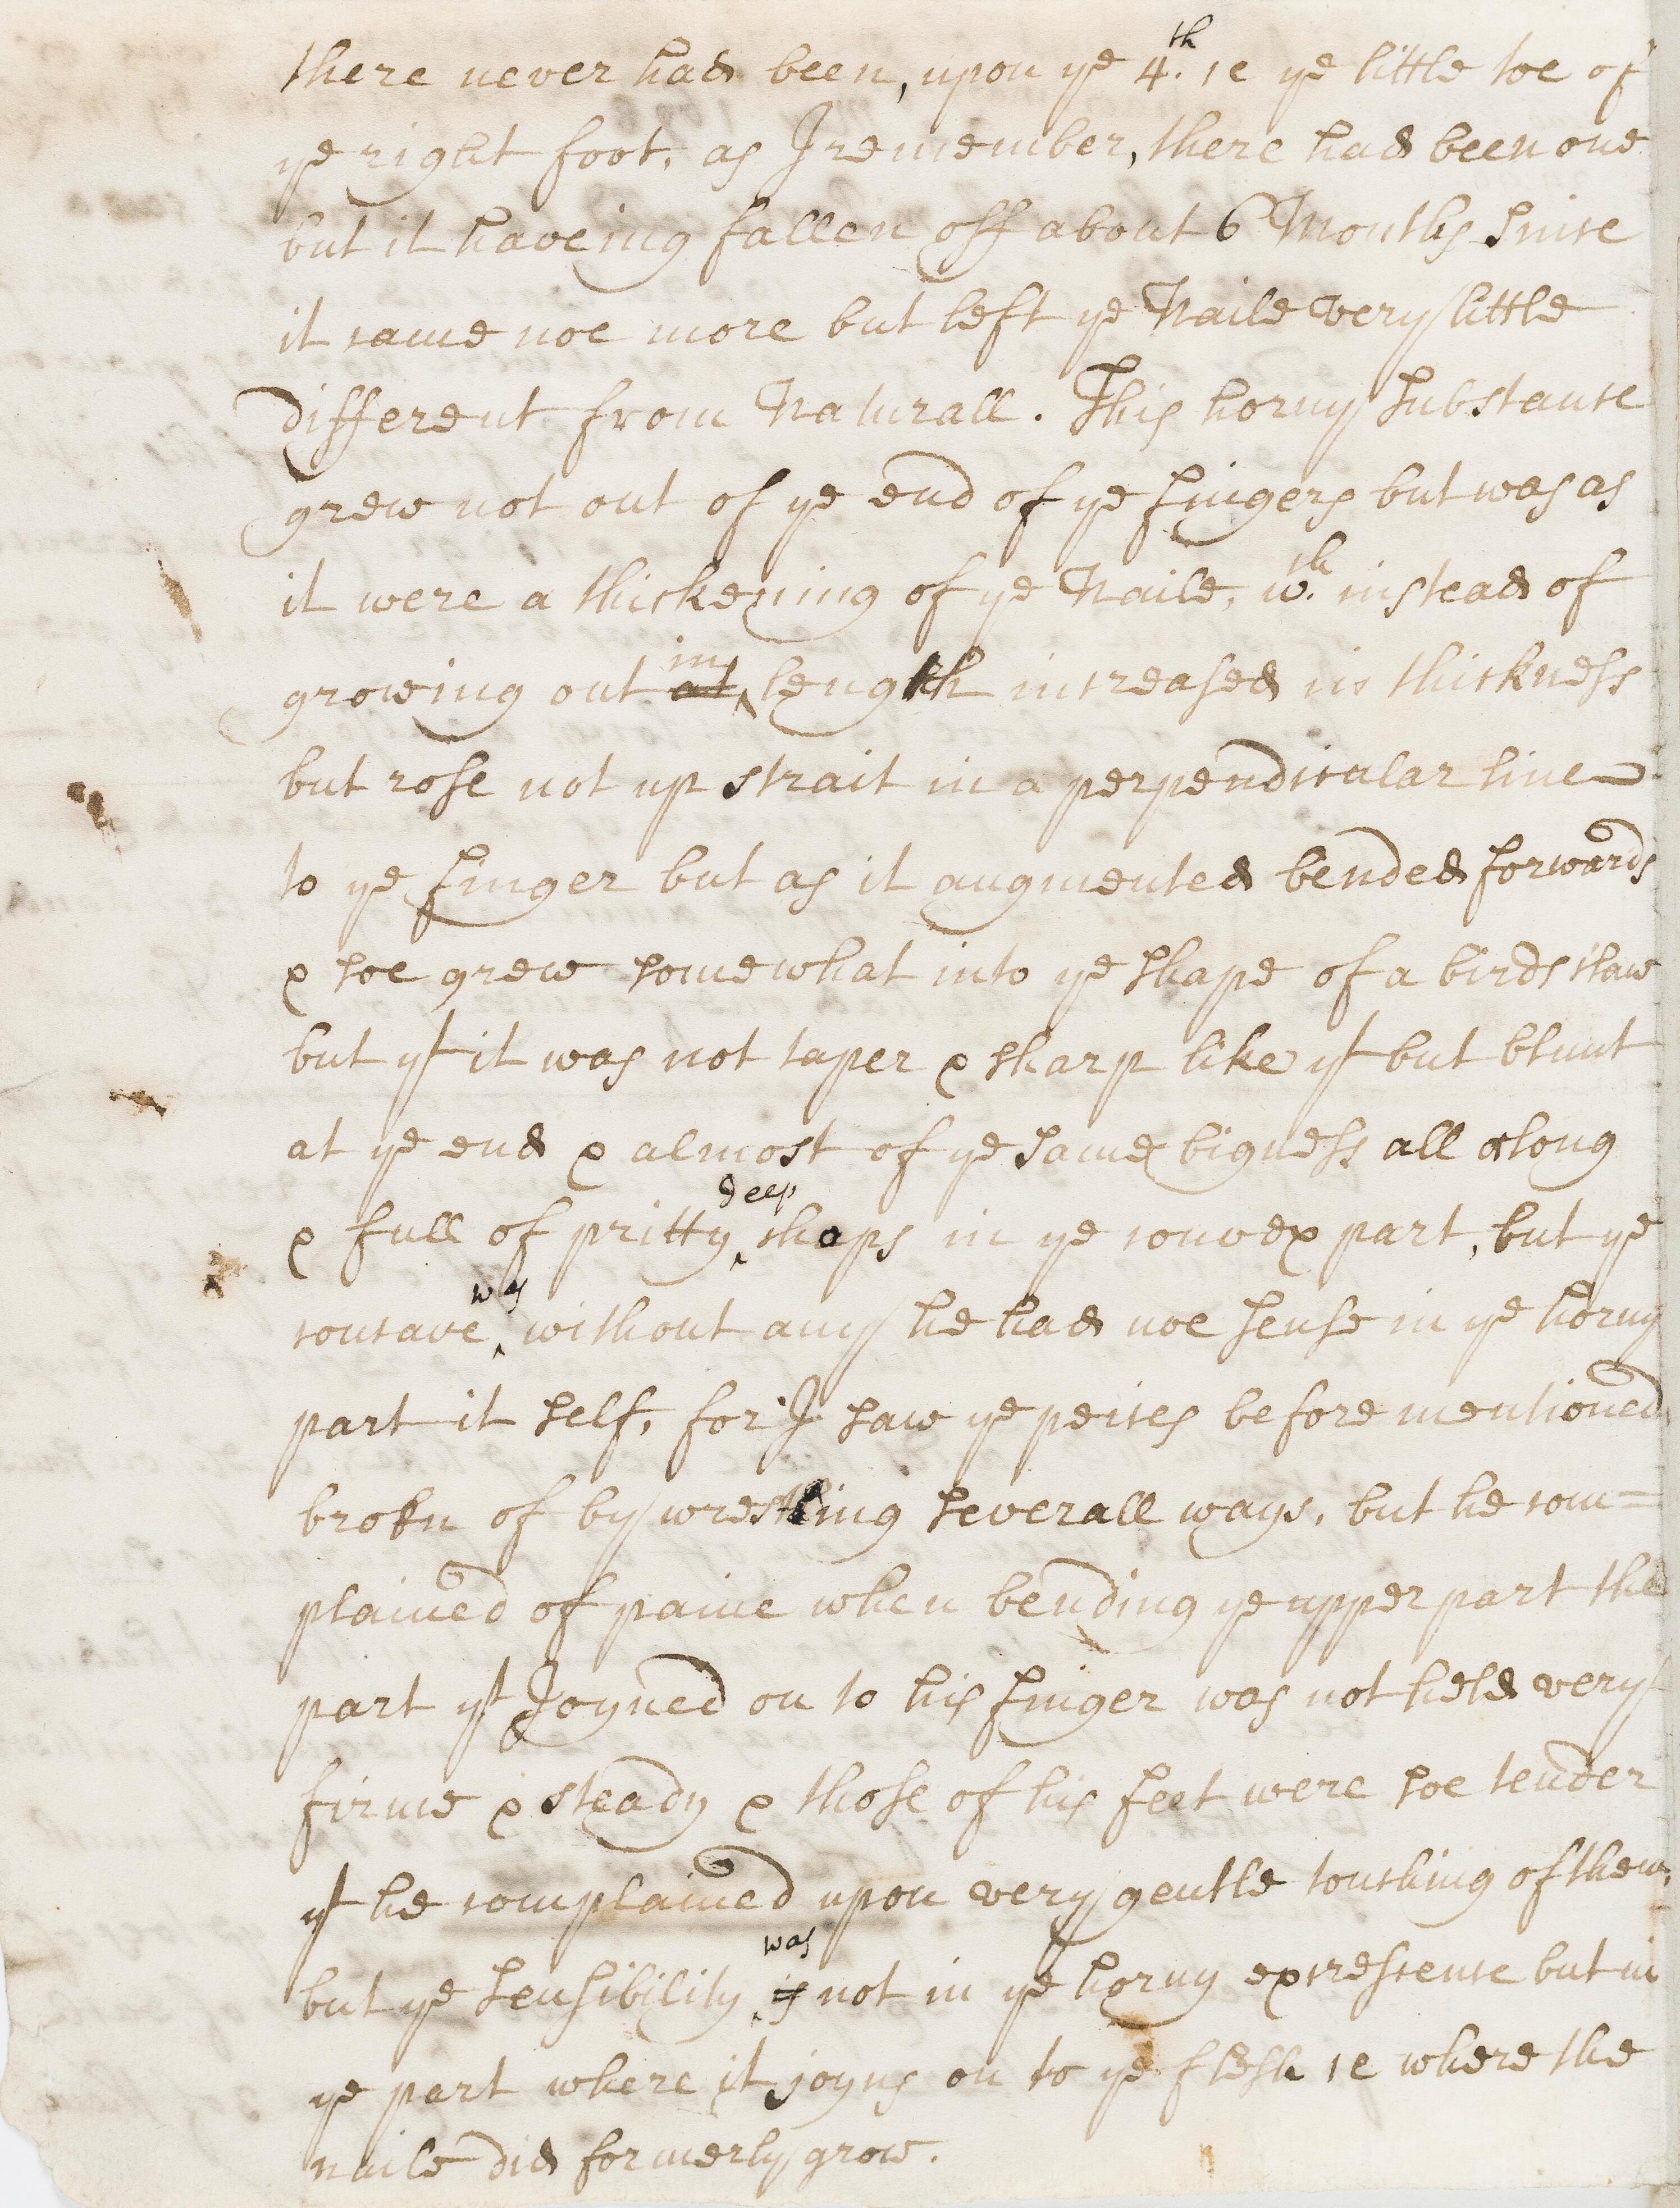 there never had been, upon ye 4.th ie ye little toe of
ye right foot, as I remember, there had been one
but it haveing fallen off about 6 Months since
it came noe more but left ye Naile very little
different from Naturall. This horny substance
grew not out of ye end of ye fingers but was as
it were a thickening of ye Naile, wch. instead of
growing out at in length increased in thickness
but rose not up strait in a perpendicular line
to ye finger but as it augmented bended forwards
& soe grew somewhat into ye shape of a birds claw
but yt it was not taper & sharp like yt but blunt
at ye end & almost of ye same bigness all along
& full of pritty deep chaps in ye convex part, but ye
concave was without any he had noe sense in ye horny
part it self, for I saw ye peices before mentioned
brokn of by wrestling severall ways, but he com=
plained of paine when bending ye upper part the
part yt Joyned on to his finger was not held very
firme & steady & those of his feet were soe tender
yt he complained upon very gentle touching of them,
but ye sensibility is was not in ye horny excrescence but in
ye part where it joyns on to ye flesh ie where the
naile did formerly grow.